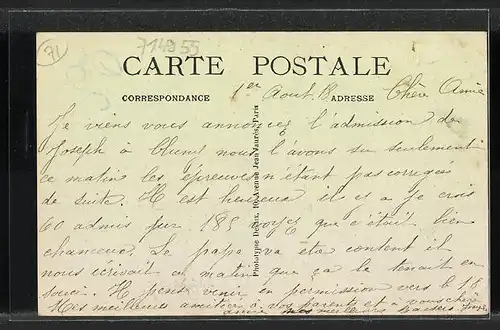 71
714955
CARTE POSTALE
CORRESPONDANCE
ADRESSE
1er Aout 18 Chère Amie
Je viens vous annoncer l'admission de
Joseph à Cluny nous l'avons su seulement
ce matin les épreuves n'étant pas corrigées
de suite. Il est heureux il y a je crois
60 admis sur 185 que c'était bien
chanceux. Le papa va etre content il
nous écrivait ce matin que ça le tenait en
souci. Il pense venir en permission vers le 18
Mes meilleures amitiés à vos parents et à vous chère
amie mes meilleurs baisers
Phototypie Delaux, 10, Avenue Jean Jaurès, Paris